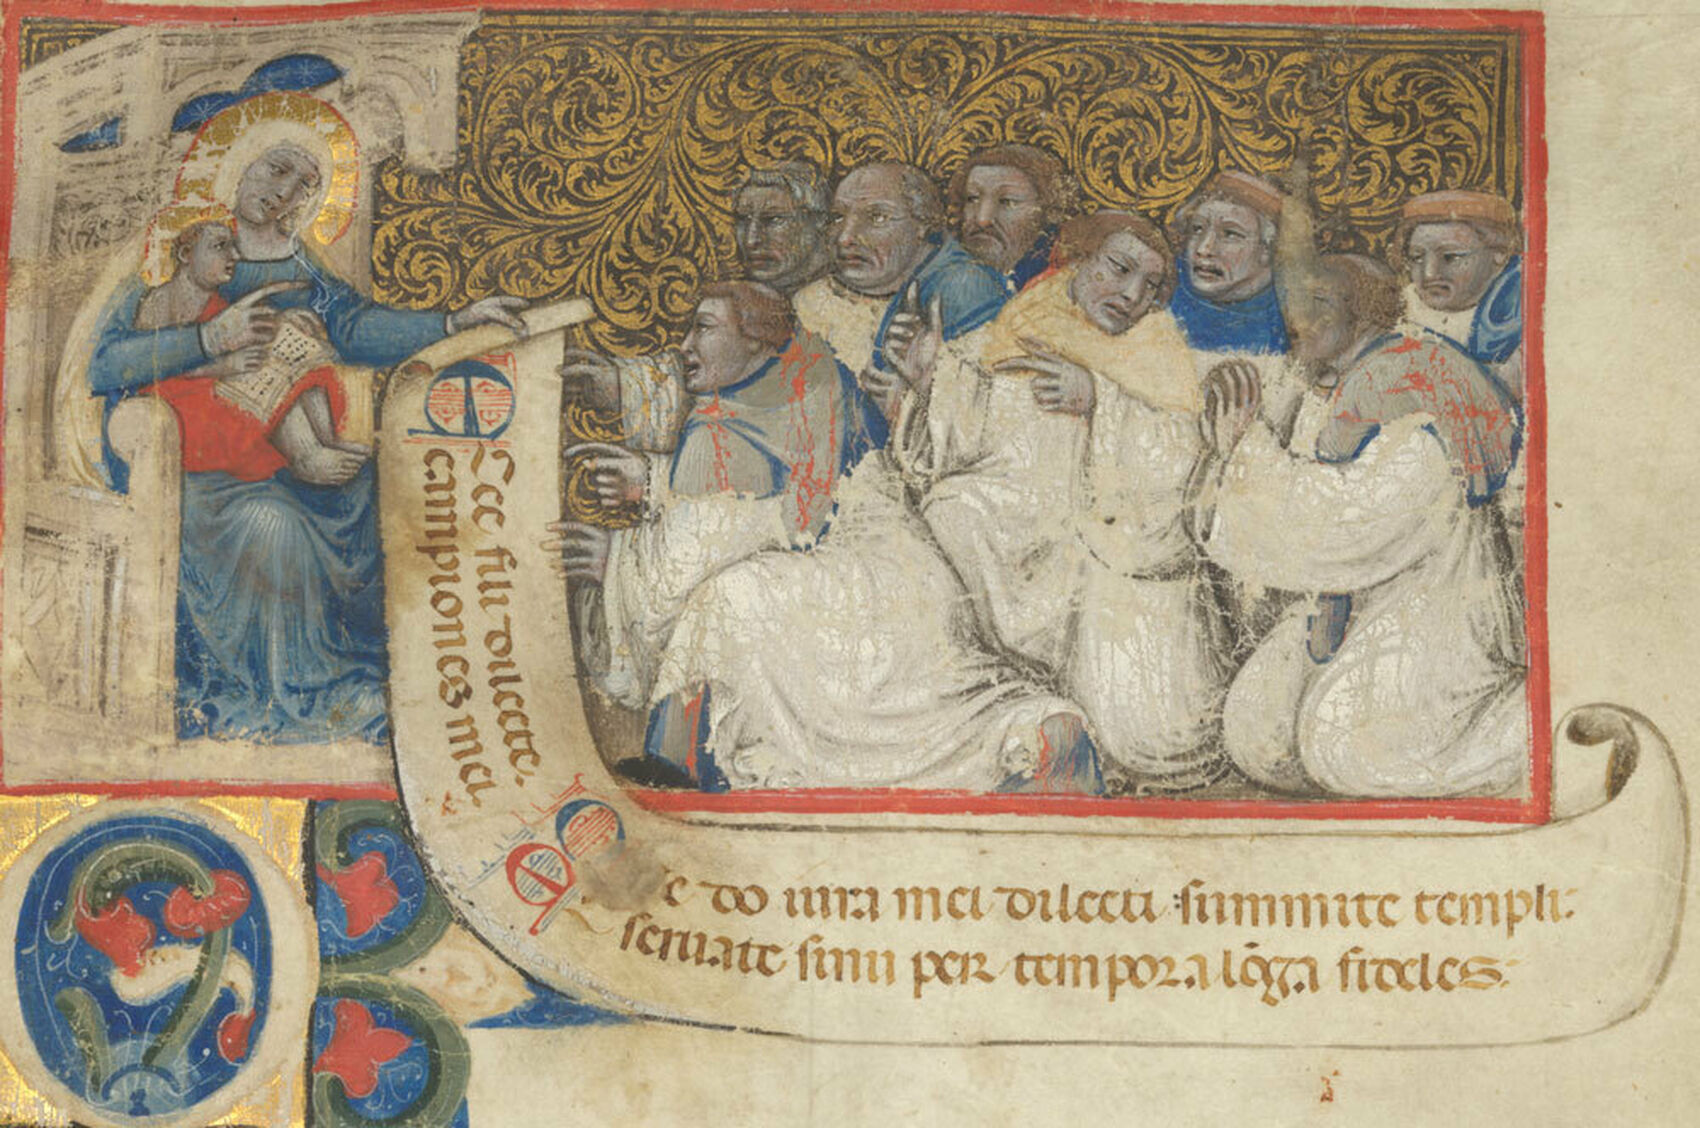 Ecce fili dilecte.
campiones mei.
do iura mei dilecti summite templi:
seruate simul per tempora lōga fideles: